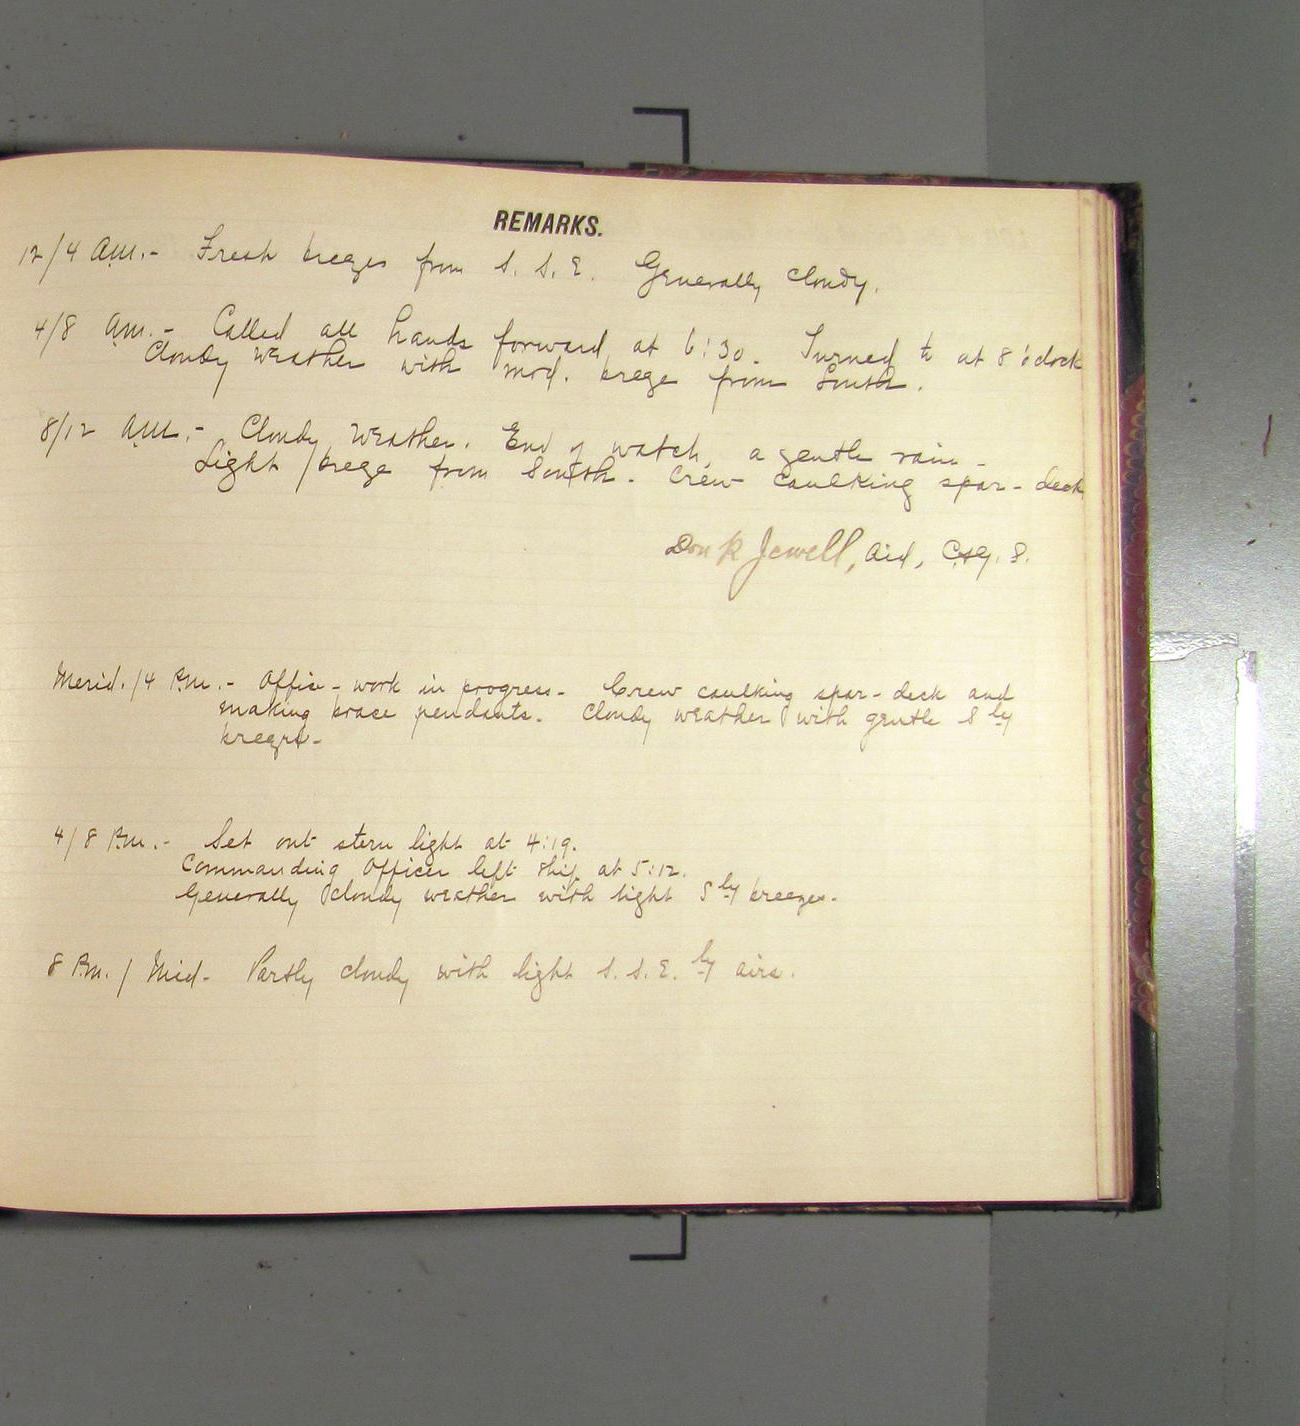 REMARKS.
12/4 A.M.- Fresh breezes from S. S. E. Generally cloudy.
4/8 A.M.- Called all hands forward at 6:30. Turned to at 8 o'clock
Cloudy weather with mod. breeze from South.
8/12 A.M.- Cloudy weather. End of watch, a gentle rain-
Light breeze from South. Crew caulking spar-deck
Don R Jewell, Aid, C.&G. S.
Merid./4 P.M.- Office-work in progress- Crew caulking spar-deck and
making brace pendants. Cloudy weather with gentle S'ly
breeze-
4/8 P.M.- Set out stern light at 4:19.
Commanding Officer left ship at 5:12.
Generally cloudy weather with light S'ly breezes.
8 P.M. / Mid- Partly cloudy with light S. S. E.'ly airs.